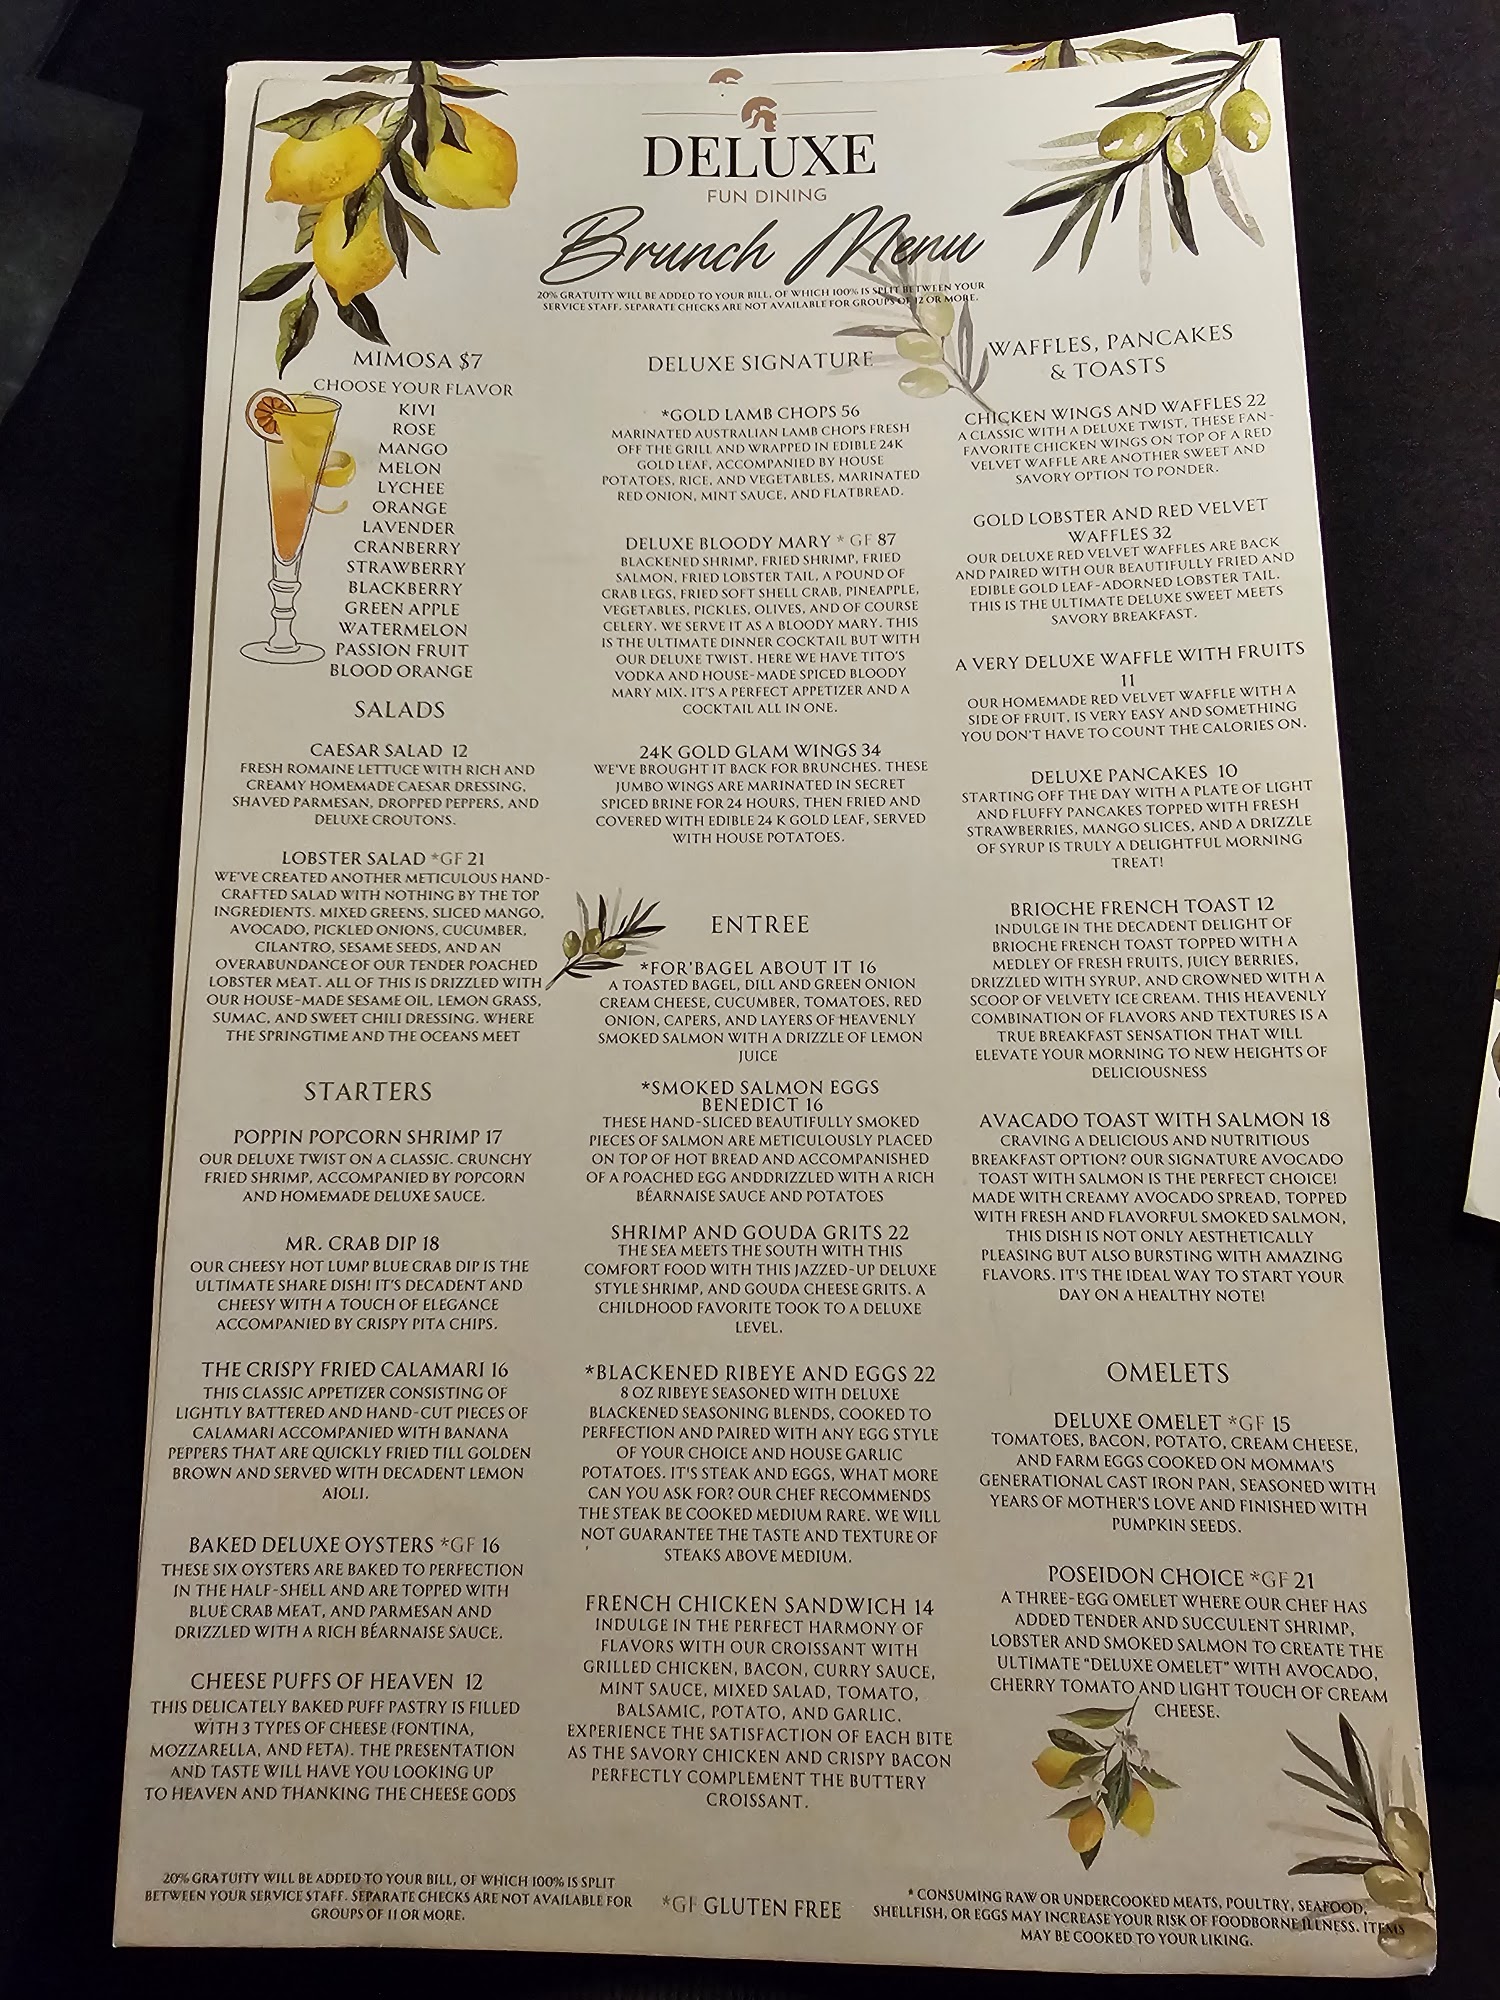 DELUXE
FUN DINING
Brunch Menu
20% GRATUITY WILL BE ADDED TO YOUR BILL, OF WHICH 100% IS SPLIT BETWEEN YOUR
SERVICE STAFF. SEPARATE CHECKS ARE NOT AVAILABLE FOR GROUPS OF 12 OR MORE.
MIMOSA $7
CHOOSE YOUR FLAVOR
KIVI
ROSE
MANGO
MELON
LYCHEE
ORANGE
LAVENDER
CRANBERRY
STRAWBERRY
BLACKBERRY
GREEN APPLE
WATERMELON
PASSION FRUIT
BLOOD ORANGE
SALADS
CAESAR SALAD 12
FRESH ROMAINE LETTUCE WITH RICH AND
CREAMY HOMEMADE CAESAR DRESSING,
SHAVED PARMESAN, DROPPED PEPPERS, AND
DELUXE CROUTONS.
LOBSTER SALAD *GF 21
WE'VE CREATED ANOTHER METICULOUS HAND-
CRAFTED SALAD WITH NOTHING BY THE TOP
INGREDIENTS. MIXED GREENS, SLICED MANGO,
AVOCADO, PICKLED ONIONS, CUCUMBER,
CILANTRO, SESAME SEEDS, AND AN
OVERABUNDANCE OF OUR TENDER POACHED
LOBSTER MEAT. ALL OF THIS IS DRIZZLED WITH
OUR HOUSE-MADE SESAME OIL, LEMON GRASS,
SUMAC, AND SWEET CHILI DRESSING. WHERE
THE SPRINGTIME AND THE OCEANS MEET
STARTERS
POPPIN POPCORN SHRIMP 17
OUR DELUXE TWIST ON A CLASSIC. CRUNCHY
FRIED SHRIMP, ACCOMPANIED BY POPCORN
AND HOMEMADE DELUXE SAUCE.
MR. CRAB DIP 18
OUR CHEESY HOT LUMP BLUE CRAB DIP IS THE
ULTIMATE SHARE DISH! IT'S DECADENT AND
CHEESY WITH A TOUCH OF ELEGANCE
ACCOMPANIED BY CRISPY PITA CHIPS.
THE CRISPY FRIED CALAMARI 16
THIS CLASSIC APPETIZER CONSISTING OF
LIGHTLY BATTERED AND HAND-CUT PIECES OF
CALAMARI ACCOMPANIED WITH BANANA
PEPPERS THAT ARE QUICKLY FRIED TILL GOLDEN
BROWN AND SERVED WITH DECADENT LEMON
AIOLI.
BAKED DELUXE OYSTERS *GF 16
THESE SIX OYSTERS ARE BAKED TO PERFECTION
IN THE HALF-SHELL AND ARE TOPPED WITH
BLUE CRAB MEAT, AND PARMESAN AND
DRIZZLED WITH A RICH BÉARNAISE SAUCE.
CHEESE PUFFS OF HEAVEN 12
THIS DELICATELY BAKED PUFF PASTRY IS FILLED
WITH 3 TYPES OF CHEESE (FONTINA,
MOZZARELLA, AND FETA). THE PRESENTATION
AND TASTE WILL HAVE YOU LOOKING UP
TO HEAVEN AND THANKING THE CHEESE GODS
DELUXE SIGNATURE
*GOLD LAMB CHOPS 56
MARINATED AUSTRALIAN LAMB CHOPS FRESH
OFF THE GRILL AND WRAPPED IN EDIBLE 24K
GOLD LEAF, ACCOMPANIED BY HOUSE
POTATOES, RICE, AND VEGETABLES, MARINATED
RED ONION, MINT SAUCE, AND FLATBREAD.
DELUXE BLOODY MARY * GF 87
BLACKENED SHRIMP, FRIED SHRIMP, FRIED
SALMON, FRIED LOBSTER TAIL, A POUND OF
CRAB LEGS, FRIED SOFT SHELL CRAB, PINEAPPLE,
VEGETABLES, PICKLES, OLIVES, AND OF COURSE
CELERY. WE SERVE IT AS A BLOODY MARY. THIS
IS THE ULTIMATE DINNER COCKTAIL BUT WITH
OUR DELUXE TWIST. HERE WE HAVE TITO'S
VODKA AND HOUSE-MADE SPICED BLOODY
MARY MIX. IT'S A PERFECT APPETIZER AND A
COCKTAIL ALL IN ONE.
24K GOLD GLAM WINGS 34
WE'VE BROUGHT IT BACK FOR BRUNCHES. THESE
JUMBO WINGS ARE MARINATED IN SECRET
SPICED BRINE FOR 24 HOURS, THEN FRIED AND
COVERED WITH EDIBLE 24 K GOLD LEAF, SERVED
WITH HOUSE POTATOES.
ENTREE
*FOR'BAGEL ABOUT IT 16
A TOASTED BAGEL, DILL AND GREEN ONION
CREAM CHEESE, CUCUMBER, TOMATOES, RED
ONION, CAPERS, AND LAYERS OF HEAVENLY
SMOKED SALMON WITH A DRIZZLE OF LEMON
JUICE
*SMOKED SALMON EGGS
BENEDICT 16
THESE HAND-SLICED BEAUTIFULLY SMOKED
PIECES OF SALMON ARE METICULOUSLY PLACED
ON TOP OF HOT BREAD AND ACCOMPANISHED
OF A POACHED EGG ANDDRIZZLED WITH A RICH
BÉARNAISE SAUCE AND POTATOES
SHRIMP AND GOUDA GRITS 22
THE SEA MEETS THE SOUTH WITH THIS
COMFORT FOOD WITH THIS JAZZED-UP DELUXE
STYLE SHRIMP, AND GOUDA CHEESE GRITS. A
CHILDHOOD FAVORITE TOOK TO A DELUXE
LEVEL.
*BLACKENED RIBEYE AND EGGS 22
8 OZ RIBEYE SEASONED WITH DELUXE
BLACKENED SEASONING BLENDS, COOKED TO
PERFECTION AND PAIRED WITH ANY EGG STYLE
OF YOUR CHOICE AND HOUSE GARLIC
POTATOES. IT'S STEAK AND EGGS, WHAT MORE
CAN YOU ASK FOR? OUR CHEF RECOMMENDS
THE STEAK BE COOKED MEDIUM RARE. WE WILL
NOT GUARANTEE THE TASTE AND TEXTURE OF
STEAKS ABOVE MEDIUM.
FRENCH CHICKEN SANDWICH 14
INDULGE IN THE PERFECT HARMONY OF
FLAVORS WITH OUR CROISSANT WITH
GRILLED CHICKEN, BACON, CURRY SAUCE,
MINT SAUCE, MIXED SALAD, TOMATO,
BALSAMIC, POTATO, AND GARLIC.
EXPERIENCE THE SATISFACTION OF EACH BITE
AS THE SAVORY CHICKEN AND CRISPY BACON
PERFECTLY COMPLEMENT THE BUTTERY
CROISSANT.
WAFFLES, PANCAKES
& TOASTS
CHICKEN WINGS AND WAFFLES 22
A CLASSIC WITH A DELUXE TWIST. THESE FAN-
FAVORITE CHICKEN WINGS ON TOP OF A RED
VELVET WAFFLE ARE ANOTHER SWEET AND
SAVORY OPTION TO PONDER.
GOLD LOBSTER AND RED VELVET
WAFFLES 32
OUR DELUXE RED VELVET WAFFLES ARE BACK
AND PAIRED WITH OUR BEAUTIFULLY FRIED AND
EDIBLE GOLD LEAF-ADORNED LOBSTER TAIL.
THIS IS THE ULTIMATE DELUXE SWEET MEETS
SAVORY BREAKFAST.
A VERY DELUXE WAFFLE WITH FRUITS
11
OUR HOMEMADE RED VELVET WAFFLE WITH A
SIDE OF FRUIT, IS VERY EASY AND SOMETHING
YOU DON'T HAVE TO COUNT THE CALORIES ON.
DELUXE PANCAKES 10
STARTING OFF THE DAY WITH A PLATE OF LIGHT
AND FLUFFY PANCAKES TOPPED WITH FRESH
STRAWBERRIES, MANGO SLICES, AND A DRIZZLE
OF SYRUP IS TRULY A DELIGHTFUL MORNING
TREAT!
BRIOCHE FRENCH TOAST 12
INDULGE IN THE DECADENT DELIGHT OF
BRIOCHE FRENCH TOAST TOPPED WITH A
MEDLEY OF FRESH FRUITS, JUICY BERRIES,
DRIZZLED WITH SYRUP, AND CROWNED WITH A
SCOOP OF VELVETY ICE CREAM. THIS HEAVENLY
COMBINATION OF FLAVORS AND TEXTURES IS A
TRUE BREAKFAST SENSATION THAT WILL
ELEVATE YOUR MORNING TO NEW HEIGHTS OF
DELICIOUSNESS
AVACADO TOAST WITH SALMON 18
CRAVING A DELICIOUS AND NUTRITIOUS
BREAKFAST OPTION? OUR SIGNATURE AVOCADO
TOAST WITH SALMON IS THE PERFECT CHOICE!
MADE WITH CREAMY AVOCADO SPREAD, TOPPED
WITH FRESH AND FLAVORFUL SMOKED SALMON,
THIS DISH IS NOT ONLY AESTHETICALLY
PLEASING BUT ALSO BURSTING WITH AMAZING
FLAVORS. IT'S THE IDEAL WAY TO START YOUR
DAY ON A HEALTHY NOTE!
OMELETS
DELUXE OMELET *GF 15
TOMATOES, BACON, POTATO, CREAM CHEESE,
AND FARM EGGS COOKED ON MOMMA'S
GENERATIONAL CAST IRON PAN, SEASONED WITH
YEARS OF MOTHER'S LOVE AND FINISHED WITH
PUMPKIN SEEDS.
POSEIDON CHOICE *GF 21
A THREE-EGG OMELET WHERE OUR CHEF HAS
ADDED TENDER AND SUCCULENT SHRIMP,
LOBSTER AND SMOKED SALMON TO CREATE THE
ULTIMATE "DELUXE OMELET" WITH AVOCADO,
CHERRY TOMATO AND LIGHT TOUCH OF CREAM
CHEESE.
20% GRATUITY WILL BE ADDED TO YOUR BILL, OF WHICH 100% IS SPLIT
BETWEEN YOUR SERVICE STAFF. SEPARATE CHECKS ARE NOT AVAILABLE FOR
GROUPS OF 11 OR MORE.
*GF GLUTEN FREE
* CONSUMING RAW OR UNDERCOOKED MEATS, POULTRY, SEAFOOD,
SHELLFISH, OR EGGS MAY INCREASE YOUR RISK OF FOODBORNE ILLNESS. ITEMS
MAY BE COOKED TO YOUR LIKING.